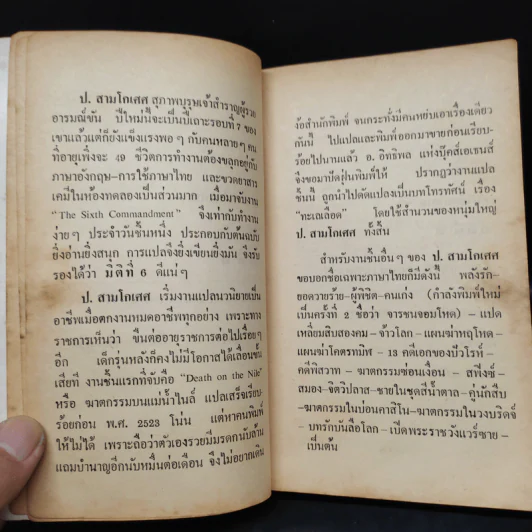 ป. สามโกเศศ สุภาพบุรุษเจ้าสำราญผู้รวย
อารมณ์ขัน ปีใหม่นี้จะเป็นปีเถาะรอบที่ 7 ของ
เขาแล้วแต่ก็ยังแข็งแรงพอ ๆ กับคนหลายๆ คน
ที่อายุเพิ่งจะ 49 ชีวิตการทำงานต้องขลุกอยู่กับ
ภาษาอังกฤษ–การใช้ภาษาไทย และขวดยาสาร
เคมีในห้องทดลองเป็นส่วนมาก เมื่อมาจับงาน
"The Sixth Commandment" จึงเท่ากับทำงาน
ง่ายๆ ประจำวันชิ้นหนึ่ง ประกอบกับต้นฉบับ
ยิ่งอ่านยิ่งสนุก การแปลจึงยิ่งเขียนยิ่งมัน จึงรับ
รองได้ว่า มิติที่ 6 ดีแน่ๆ
ป. สามโกเศศ เริ่มงานแปลนวนิยายเป็น
อาชีพเมื่อตกงานหมดอาชีพทุกอย่าง เพราะทาง
ราชการเห็นว่า ขืนต่ออายุราชการต่อไปเรื่อยๆ
อีก เด็กรุ่นหลังก็คงไม่มีโอกาสได้เลื่อนขั้น
เสียที งานชิ้นแรกที่จับคือ "Death on the Nile"
หรือ ฆาตกรรมบนแม่น้ำไนล์ แปลเสร็จเรียบ-
ร้อยก่อน พ.ศ. 2523 โน่น แต่หาคนพิมพ์
ให้ไม่ได้ เพราะถือว่าตัวเองรวยมีมรดกนับล้าน
แถมบำนาญอีกนับหมื่นต่อเดือน จึงไม่อยากเดิน
ง้อสำนักพิมพ์ จนกระทั่งมีคนหยิบเอาเรื่องเดียว
กันนี้ ไปแปลและพิมพ์ออกมาขายก่อนเรียบ-
ร้อยไปนานแล้ว อ. อิทธิพล แห่งบุ๊คส์เอเยนส์
จึงขอมาปัดฝุ่นพิมพ์ให้ ปรากฏว่างานแปล
ชิ้นนี้ ถูกนำไปดัดแปลงเป็นบทโทรทัศน์ เรื่อง
"ทะเลเลือด" โดยใช้สำนวนของหนุ่มใหญ่
ป. สามโกเศศ ทั้งสิ้น
สำหรับงานชิ้นอื่นๆ ของ ป. สามโกเศศ
ขอบอกชื่อเฉพาะภาษาไทยก็มีดังนี้ พลังรัก-
ยอดวายร้าย-ผู้พิชิต-คนเก่ง (กำลังพิมพ์ใหม่
เป็นครั้งที่ 2 ชื่อว่า จารชนจอมโหด) – แปด
เหลี่ยมสิบสองคม – จ้าวโลก – แผนฆ่าหฤโหด –
แผนฆ่าโคตรทมิฬ – 13 คดีเอกของปัวโรท์ –
คดีพิสวาท – ฆาตกรรมซ่อนเงื่อน – สฟิงซ์ –
สมอง – จิตวิปลาส – ชายในชุดสีน้ำตาล – คู่นักสืบ
– ฆาตกรรมในบ่อนคาสิโน – ฆาตกรรมในวงบริดจ์
– บทรักบันลือโลก – เปิดพระราชวังแวร์ซาย –
เป็นต้น